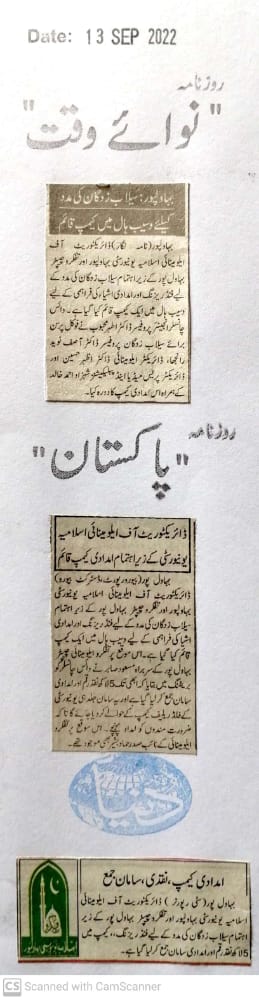 Date: 13 SEP 2022
روزنامہ
"نوائے وقت"
بہاولپور: سیلاب زدگان کی مدد
کیلئے وسیب ہال میں کیمپ قائم
بہاولپور (نامہ نگار) ڈائریکٹوریٹ آف
ایلومینائی اسلامیہ یونیورسٹی بہاولپور اور تظفرہ چیپٹر
بہاول پور کے زیر اہتمام سیلاب زدگان کی مدد کے
لیے فنڈ ریزنگ اور امدادی اشیاء کی فراہمی کے لیے
وسیب ہال میں ایک کیمپ قائم کیا گیا ہے۔ وائس
چانسلر انجینئر پروفیسر ڈاکٹر اطہر محبوب نے فوکل پرسن
برائے سیلاب زدگان پروفیسر ڈاکٹر آصف نوید
رانجھا، ڈائریکٹر ایلومینائی ڈاکٹر اظہر حسین اور
ڈائریکٹر پریس میڈیا اینڈ پبلیکیشنز شہزاد احمد خالد
کے ہمراہ اس امدادی کیمپ کا دورہ کیا۔
روزنامہ
"پاکستان"
ڈائریکٹوریٹ آف ایلومینائی اسلامیہ
یونیورسٹی کے زیر اہتمام امدادی کیمپ قائم
بہاول پور (بیورو رپورٹ، ڈسٹرکٹ بیورو)
ڈائریکٹوریٹ آف ایلومینائی اسلامیہ یونیورسٹی
بہاولپور اور تظفرہ چیپٹر بہاول پور کے زیر اہتمام
سیلاب زدگان کی مدد کے لیے فنڈ ریزنگ اور امدادی
اشیاء کی فراہمی کے لیے وسیب ہال میں ایک کیمپ
قائم کیا گیا ہے۔ اس موقع پر تظفرہ ایلومینائی چیپٹر
بہاول پور کے سربراہ مسعود صابر نے وائس چانسلر کو
بریفنگ میں بتایا کہ ابھی تک 5 لاکھ نقد رقم اور امدادی
سامان جمع کر لیا گیا ہے اور یہ سامان جلد ہی یونیورسٹی
کے فلڈ ریلیف کیمپ کے حوالے کر دیا جائے گا تاکہ
ضرورت مندوں کو امداد پہنچے۔ اس موقع پر تظفرہ
ایلومینائی کے نائب صدر حماد بھی موجود تھے۔
دنیا
امدادی کیمپ، نقدی، سامان جمع
بہاول پور (سٹی رپورٹر) ڈائریکٹوریٹ آف ایلومینائی
اسلامیہ یونیورسٹی بہاولپور اور تظفرہ چیپٹر بہاول پور کے زیر
اہتمام سیلاب زدگان کی مدد کے لیے فنڈ ریزنگ، کیمپ میں
5 لاکھ نقد رقم اور امدادی سامان جمع کر لیا گیا ہے۔
CS Scanned with CamScanner